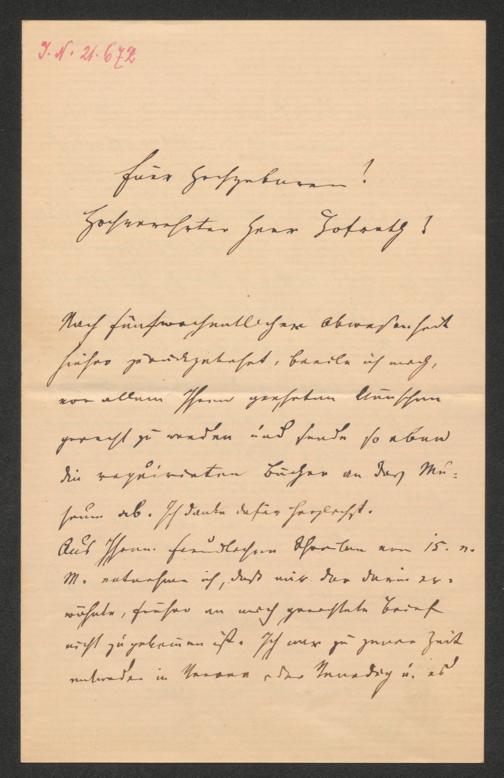 I. N. 21.672
Euer Hochgeboren!
Hochverehrter Herr Hofrath!
Nach fünfwochentlicher Abwesenheit
hieher zurückgekehrt, beeile ich mich,
vor allem Ihren geehrten Wünschen
gerecht zu werden und sende so eben
die requirirten Bücher an das Mu-
seum ab. Ich danke dafür herzlichst.
Aus Ihrem freundlichen Schreiben vom 15. v.
M. entnehme ich, daß mir der darin er-
wähnte, früher an mich gerichtete Brief
nicht zugekommen ist. Ich war zu jener Zeit
entweder in Verona oder Venedig u. es